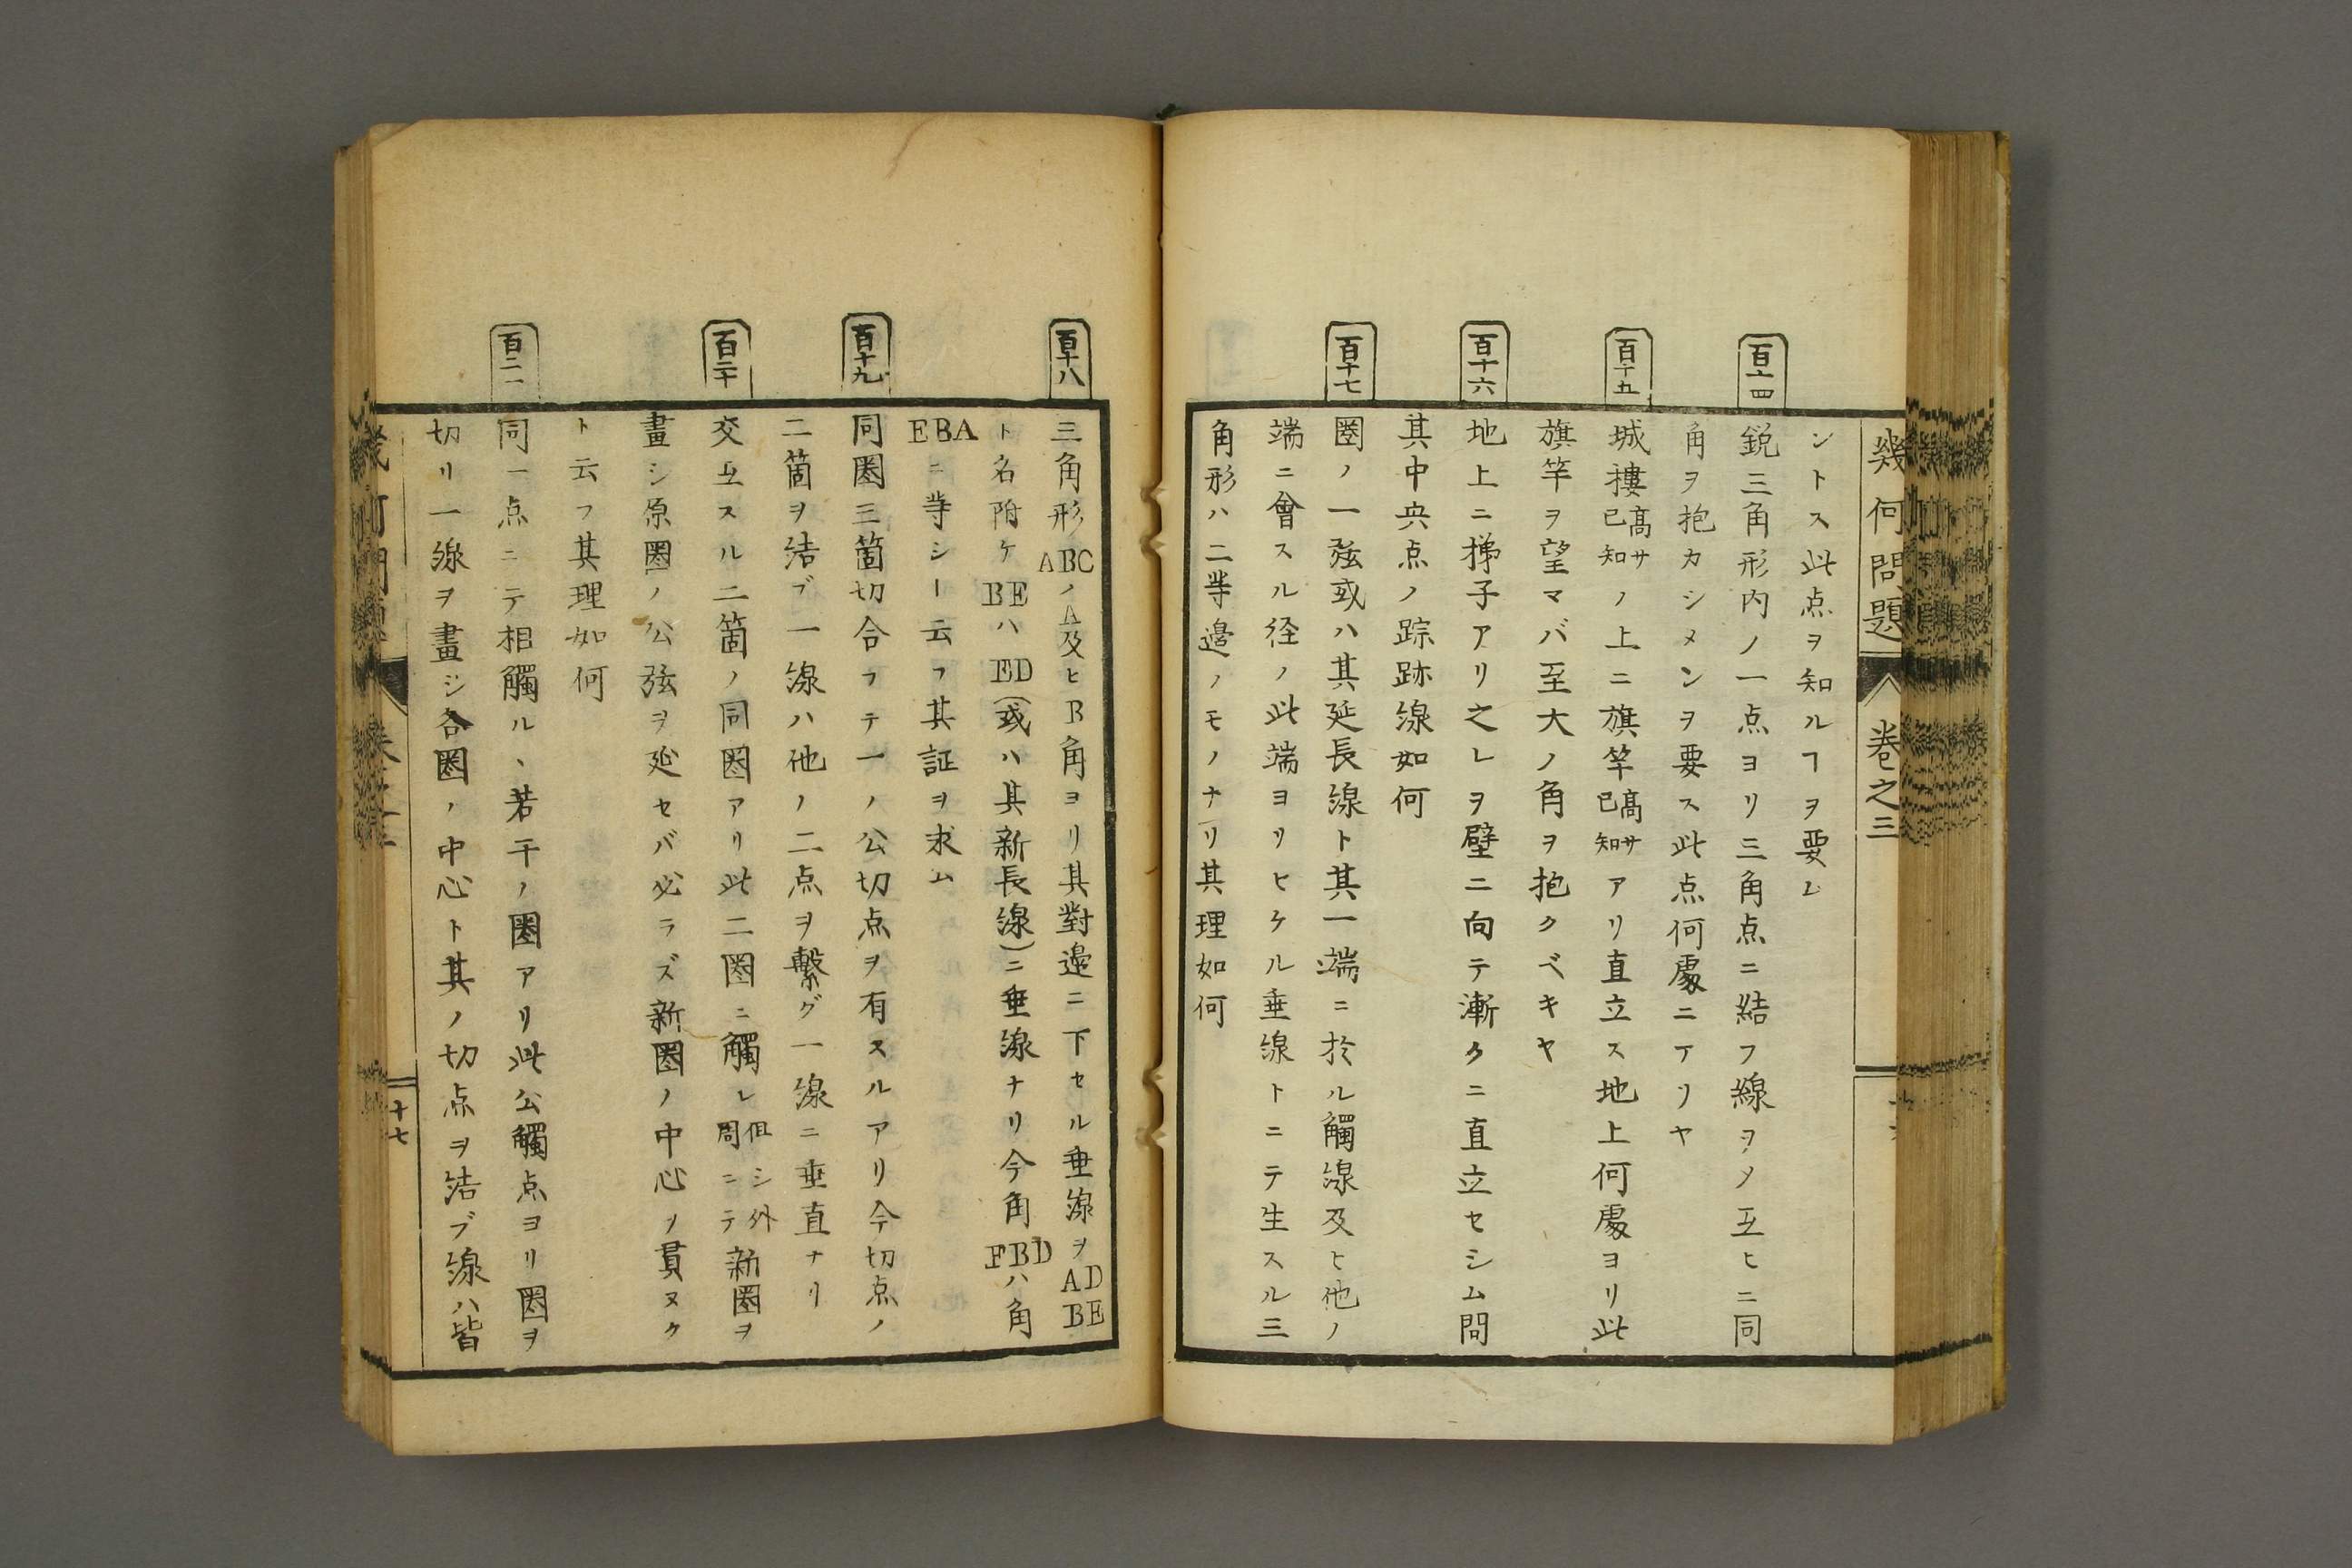 幾何問題
卷之三
ントス此点ヲ知ルヿヲ要ㇾ
百十四
鋭三角形内ノ一点ヨリ三角点ニ結フ線ヲノ互ヒニ同
角ヲ抱カシメンヲ要ス此点何處ニアリヤ
百十五
城樓高サ已知ノ上ニ旗竿高サ已知アリ直立ス地上何處ヨリ此
旗竿ヲ望マバ至大ノ角ヲ抱クベキヤ
百十六
地上ニ梯子アリ之レヲ壁ニ向テ漸クニ直立セシム問
其中央点ノ踪跡線如何
百十七
圏ノ一弦或ハ其延長線ト其一端ニ於ル觸線及ヒ他ノ
端ニ會スル径ノ此端ヨリヒケル垂線トニテ生スル三
角形ハ二等邊ノモノナリ其理如何
百十八
三角形ABCノA及ヒB角ヨリ其對邊ニ下セル垂線ヲAD BE
ト名附ケBEハED(或ハ其新長線)ニ垂線ナリ今角FBDハ角
EBAニ等シト云フ其証ヲ求ム
百十九
同圏三箇切合フテ一ノ公切点ヲ有スルアリ今切点ノ
二箇ヲ結ブ一線ハ他ノ二点ヲ繫グ一線ニ垂直ナリ
百二十
交互スル二箇ノ同圏アリ此二圏ニ觸レ但シ外周ニテ新圏ヲ
畫シ原圏ノ公弦ヲ延セバ必ラズ新圏ノ中心ヲ貫ヌク
ト云フ其理如何
百二一
同一点ニテ相觸ル丶若干ノ圏アリ此公觸点ヨリ圏ヲ
切リ一線ヲ畫シ各圏ノ中心ト其ノ切点ヲ結ブ線ハ皆
幾何問題
十七